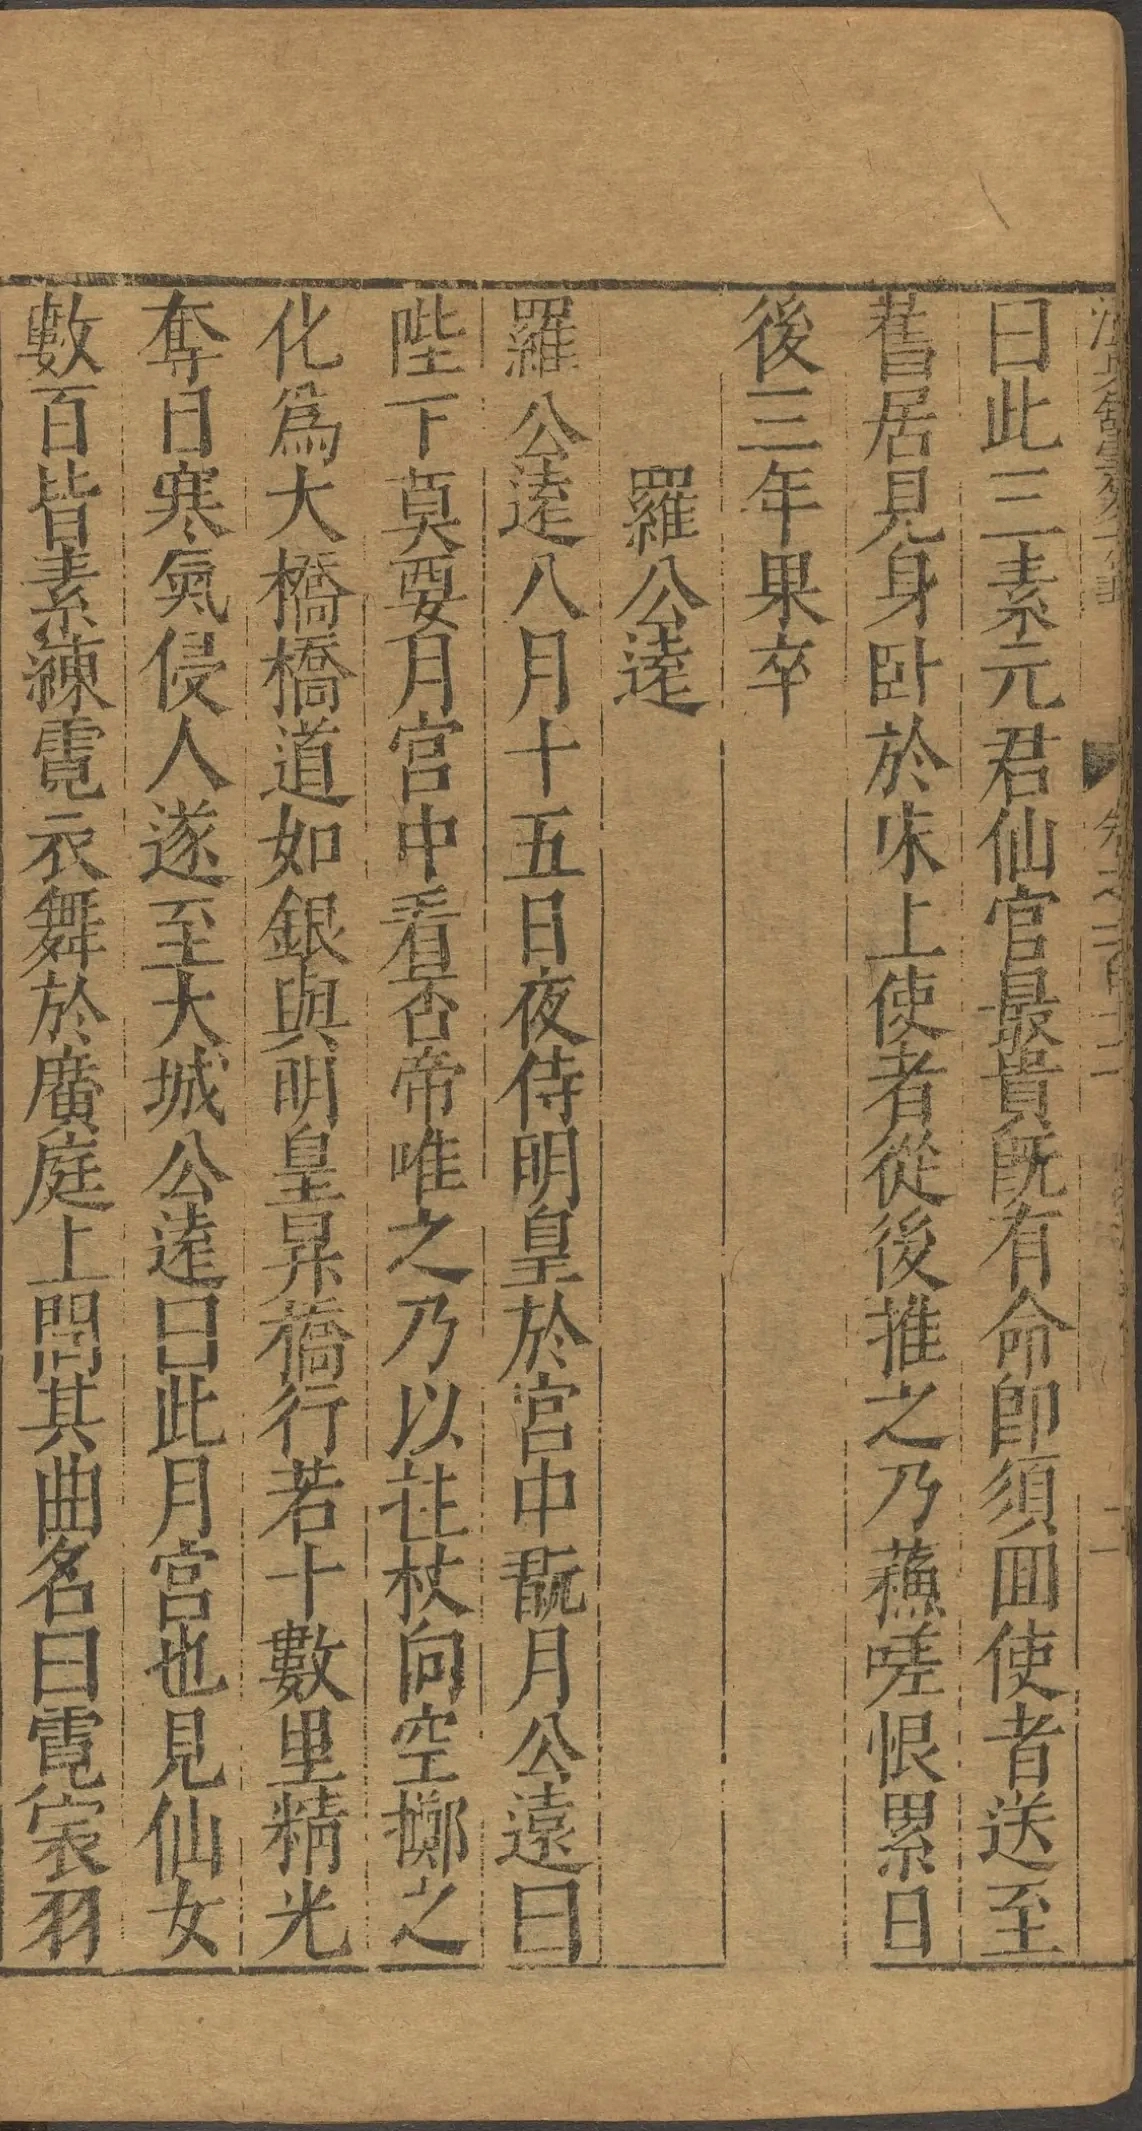 曰此三素元君仙官最貴既有命即須回使者送至
舊居見身卧於牀上使者從後推之乃蘓嗟恨累日
後三年果卒
羅公逺
羅公逺八月十五日夜侍明皇於宮中翫月公遠曰
陛下莫要月宮中看否帝唯之乃以拄杖向空擲之
化爲大橋橋道如銀與明皇昇橋行若十數里精光
奪日寒氣侵人遂至大城公逺曰此月宮也見仙女
數百皆素練霓衣舞於廣庭上問其曲名曰霓裳羽